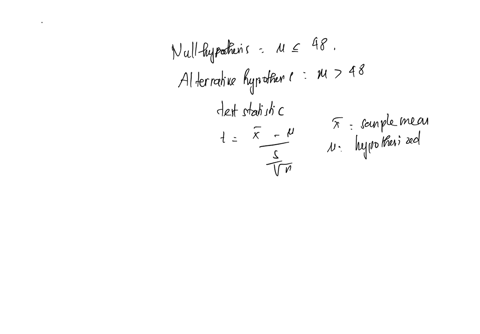 Null hypothesis : μ ≤ 48.
Alternative hypothesis : μ > 48
test statistic
t = x̄ - μ / s/√n
x̄ : sample mean
μ: hypothesized